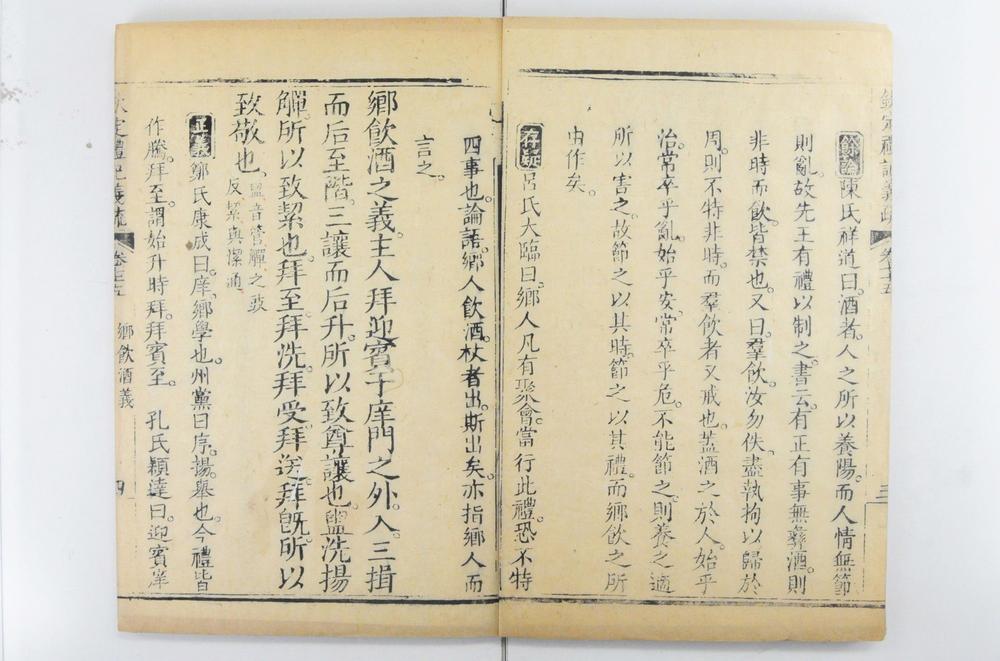 欽定禮記義疏
卷七十五
三
餘論陳氏祥道曰。酒者。人之所以養陽。而人情無節
則亂。故先王有禮以制之。書云。有正有事無彝酒。則
非時而飲。皆禁也。又曰。羣飲。汝勿佚。盡執拘以歸於
周。則不特非時。而羣飲者又戒也。蓋酒之於人。始乎
治。常卒乎亂。始乎安。常卒乎危。不能節之。則養之適
所以害之。故節之以其時。節之以其禮。而鄉飲之所
由作矣。
存疑呂氏大臨曰。鄉人凡有聚會。當行此禮。恐不特
四事也。論語。鄉人飲酒。杖者出。斯出矣。亦指鄉人而
言之。
鄉飲酒之義。主人拜迎賓于庠門之外。入。三揖
而后至階。三讓而后升。所以致尊讓也。盥洗揚
觶。所以致絜也。拜至。拜洗。拜受。拜送。拜旣。所以
致敬也。盥音管觶之豉
反絜與潔通
正義鄭氏康成曰。庠。鄉學也。州黨曰序。揚。舉也。今禮皆
作騰。拜至。謂始升時拜。拜賓至。 孔氏穎達曰。迎賓庠
欽定禮記義疏
卷七十五
鄉飲酒義
四